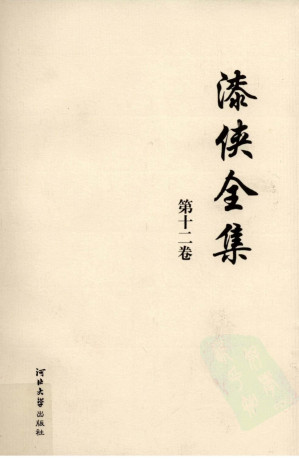 漆侠全集
第十二卷
河北大学出版社